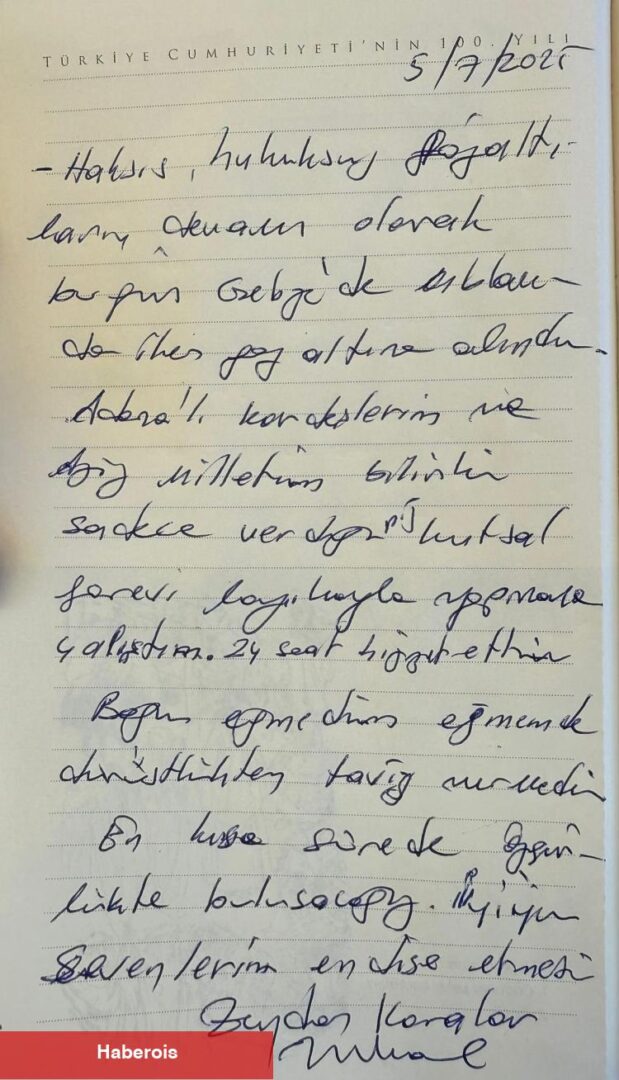 TÜRKİYE CUMHURİYETİ'NİN 100. YILI
5/7/2025
- Haksız, hukuksuz gözaltı-
ların devamı olarak
bugün Gebze'de
da ilen göz altına alındım.
Adana'lı kardeşlerim ve
Aziz milletim bilsinki
sadece verdiğiniz kutsal
görevi layıkıyla yapmaya
çalıştım. 24 saat hizmet ettim
Boyun eğmedim eğmemde
dürüstlükten taviz vermedim
En kısa sürede özgür-
lükte buluşacağız. İyiyim
Sevenlerim endişe etmesin
Zeydan Karalar
Haberois